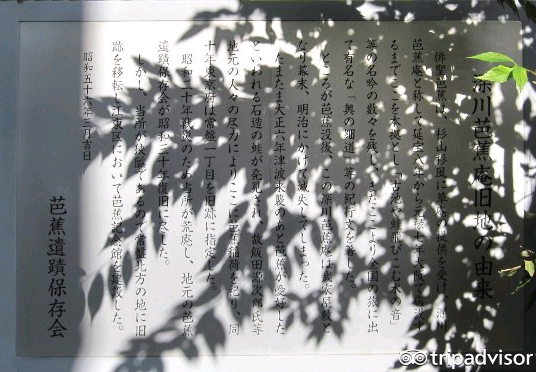 深川芭蕉庵旧地の由来
俳聖芭蕉は、杉山杉風に草庵の提供を受け、深川
芭蕉庵と称して延宝八年から元禄七年大阪で
るまでここを本拠とし「古池や蛙飛びこむ水の音」
等の名吟の数々を残し、またここより全国の旅に出
て有名な「奥の細道」等の紀行文を著した。
ところが芭蕉没後、この深川芭蕉庵は武家屋敷と
なり幕末、明治にかけて滅失してしまった。
たまたま大正六年津波来襲のあと芭蕉が愛好した
といわれる石造の蛙が発見され、故飯田源次郎氏等
地元の人々の尽力によりここに芭蕉稲荷を祀り、同
十年東京府は常盤一丁目を旧跡に指定した。
昭和二十年戦災のため当所が荒廃し、地元の芭蕉
遺蹟保存会が昭和三十年復旧に尽した。
しかし、当所が狭隘であるので常盤北方の地に旧
跡を移転し江東区において芭蕉記念館を建設した。
昭和五十六年三月吉日
芭蕉遺蹟保存会
tripadvisor